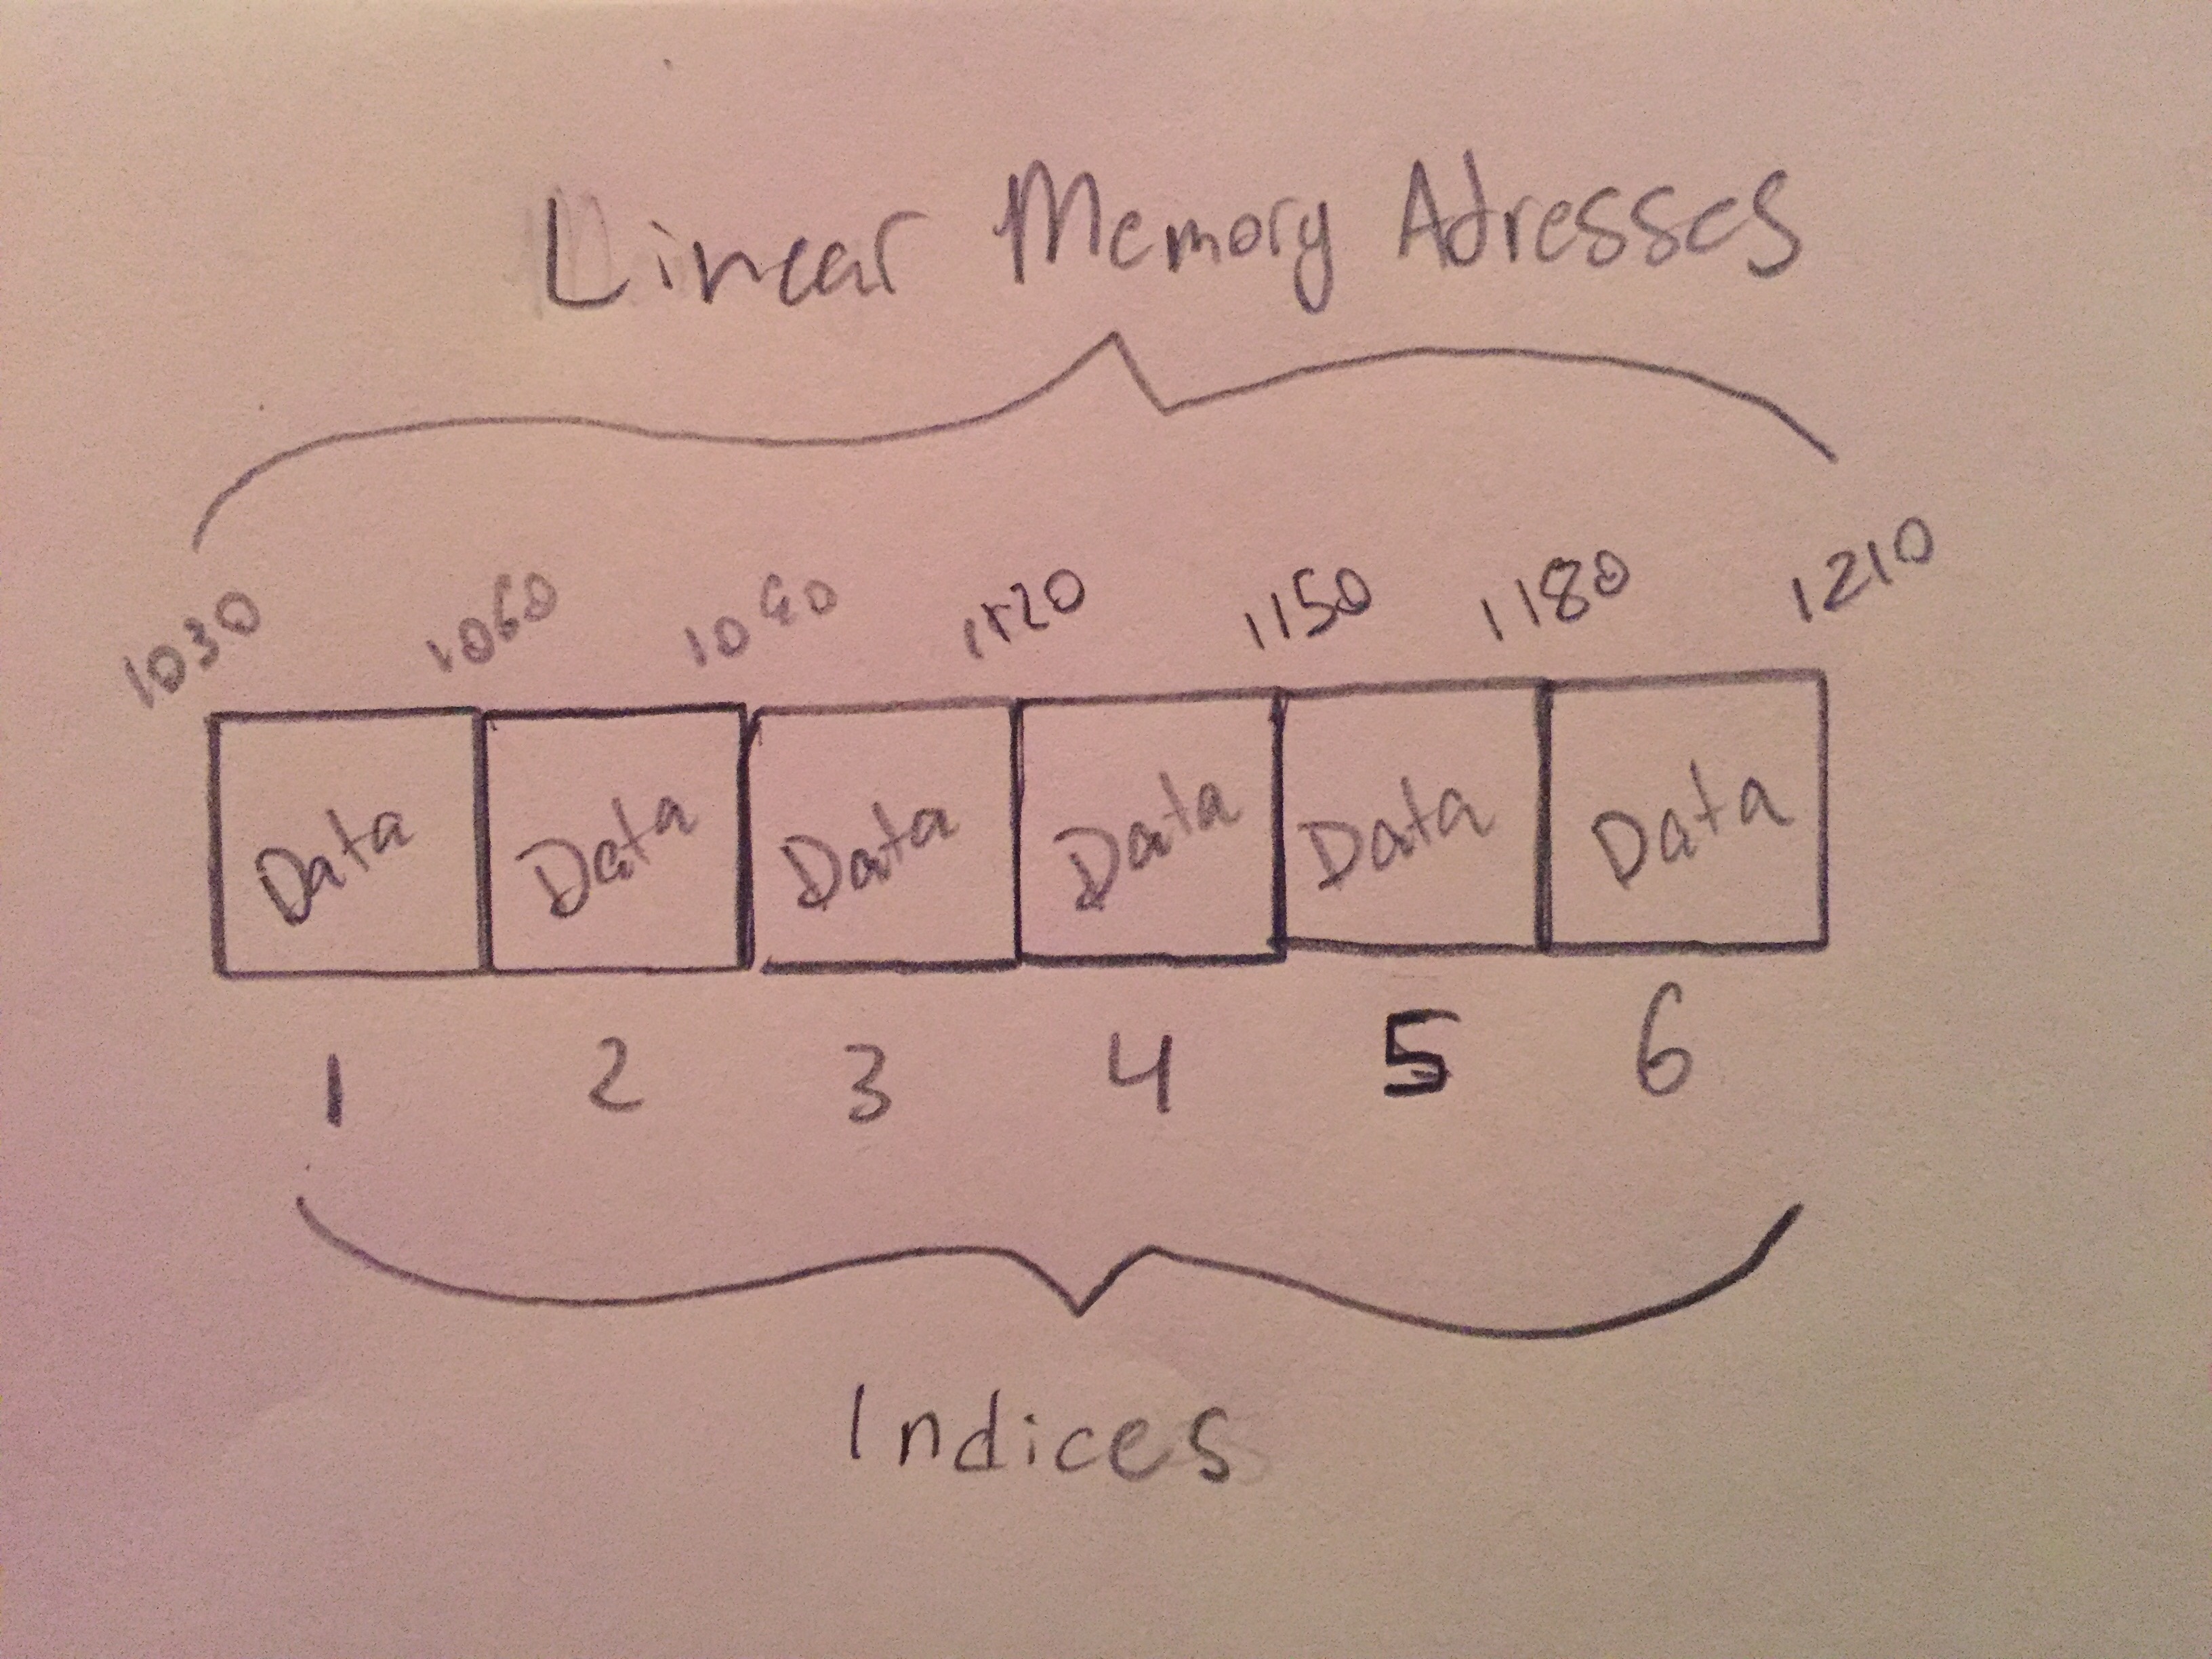 Linear Memory Adresses
1030 1060 1090 1120 1150 1180 1210
Data Data Data Data Data Data
1 2 3 4 5 6
Indices